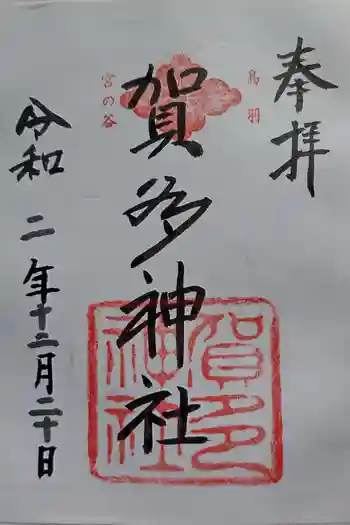 奉拝
鳥羽
宮の谷
賀多神社
賀多神社
令和二年十二月二十日